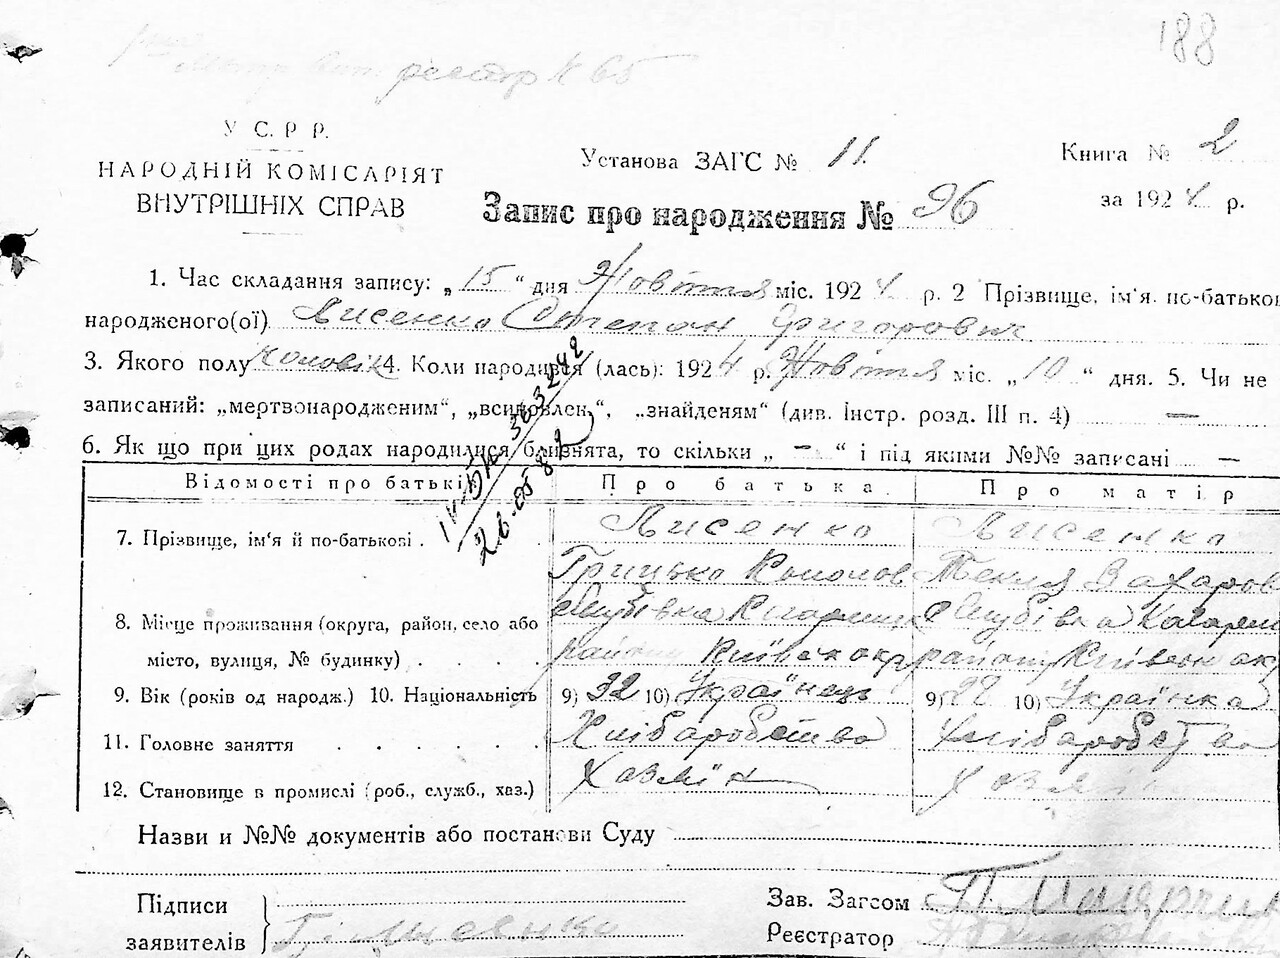 188
реєстр № 65
У С. Р Р.
НАРОДНІЙ КОМІСАРІЯТ
ВНУТРІШНІХ СПРАВ
Установа ЗАГС № 11.
Книга № 2
Запис про народження № 96
за 1924 р.
1. Час складання запису: „ 15 “ дня Жовтня міс. 1924 р. 2 Прізвище, ім'я. по-батькові
народженого(ої) Лисенко Степан Григорович
3. Якого полу чоловік 4. Коли народився (лась): 1924 р. Жовтня міс. „ 10 “ дня. 5. Чи не
записаний: „мертвонародженим“, „всиновлен.“, „знайденям“ (див. Інстр. розд. III п. 4) —
6. Як що при цих родах народилися близнята, то скільки „ — “ і під якими №№ записані —
Відомості про батьків
Про батька
Про матір
7. Прізвище, ім'я й по-батькові .
Лисенко
Лисенко
Грицько Кононов
Текля Захаров
8. Місце проживання (округа, район, село або
місто, вулиця, № будинку) . . . .
району Київськ окр
району Київськ ок
9. Вік (років од народж.) 10. Національність
9) 32 10) Українець
9) 10) Українка
11. Головне заняття . . . . .
Хліборобство
Хліборобство
12. Становище в промислі (роб., служб., хаз.)
Хазяїн
Назви и №№ документів або постанови Суду
Підписи
заявителів
Лисенко
Зав. Загсом
Реєстратор